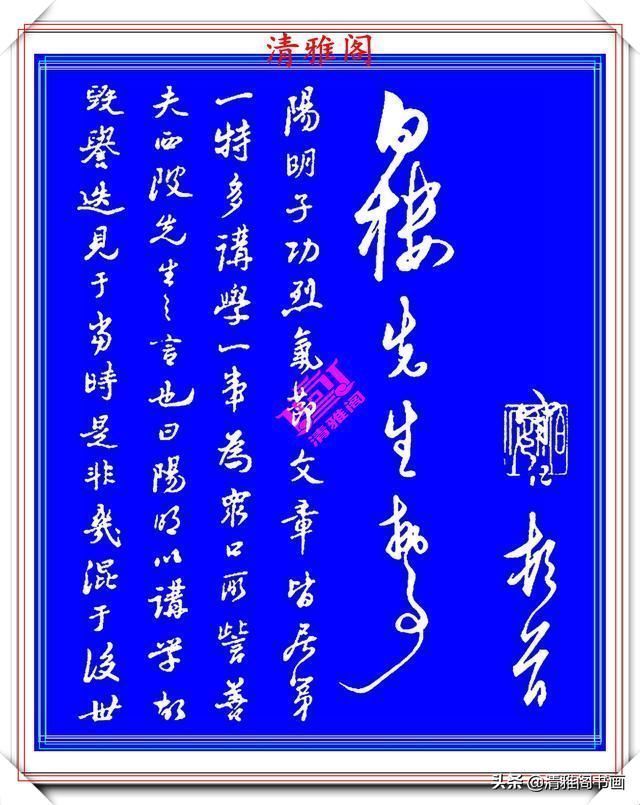 清雅阁
頓首
白樓先生執事
陽明子功烈氣節文章皆居第
一特多講學一事為衆口所訾善
夫西陂先生之言也曰陽明以講學故
毀譽迭見于當時是非幾混于後世
清雅阁
头条 @清雅阁书画